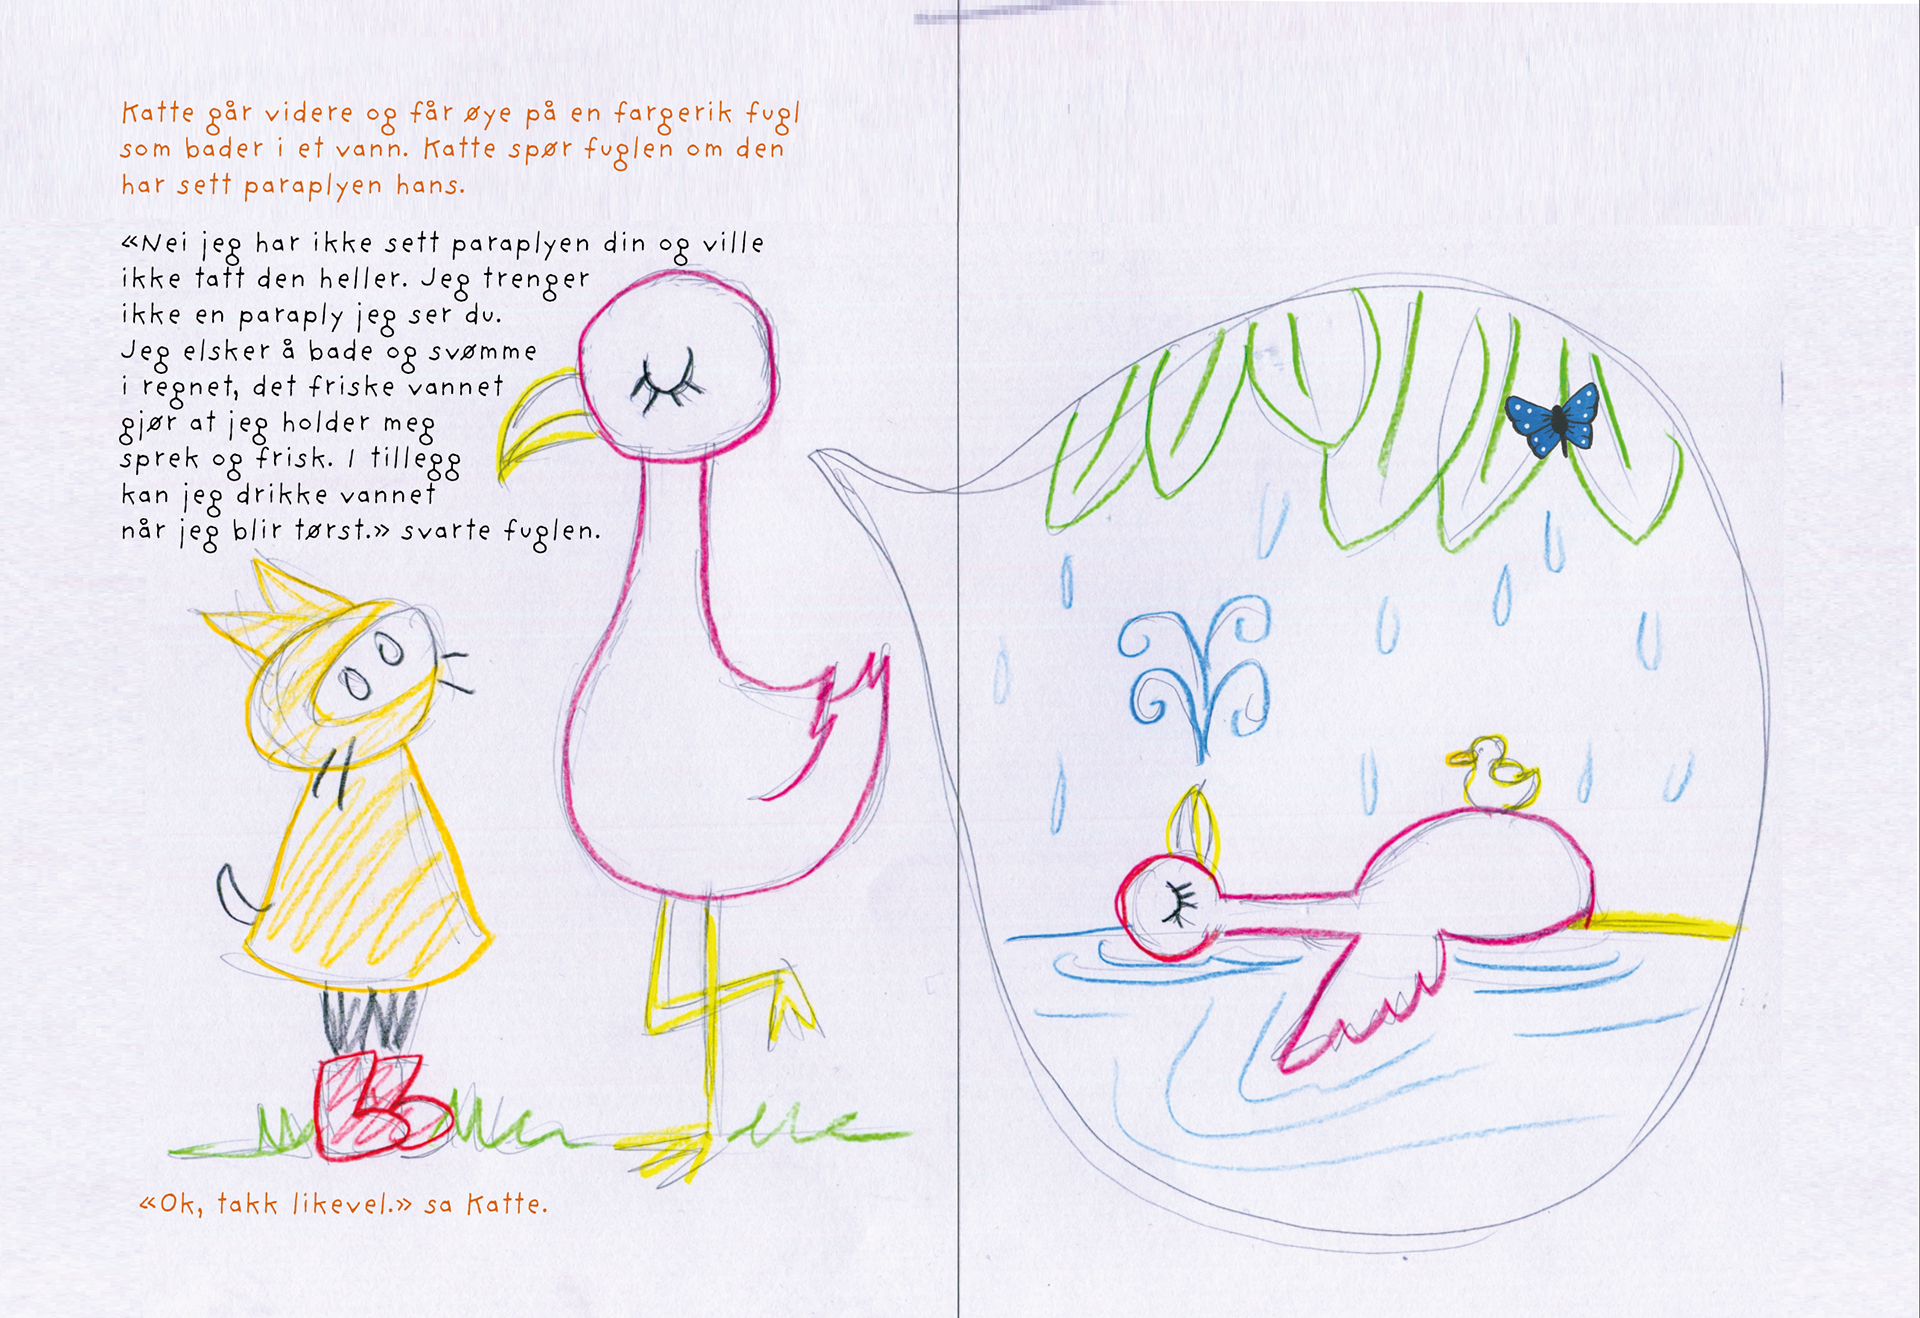 Katte går videre og får øye på en fargerik fugl
som bader i et vann. Katte spør fuglen om den
har sett paraplyen hans.
«Nei jeg har ikke sett paraplyen din og ville
ikke tatt den heller. Jeg trenger
ikke en paraply jeg ser du.
Jeg elsker å bade og svømme
i regnet, det friske vannet
gjør at jeg holder meg
sprek og frisk. I tillegg
kan jeg drikke vannet
når jeg blir tørst.» svarte fuglen.
«Ok, takk likevel.» sa Katte.